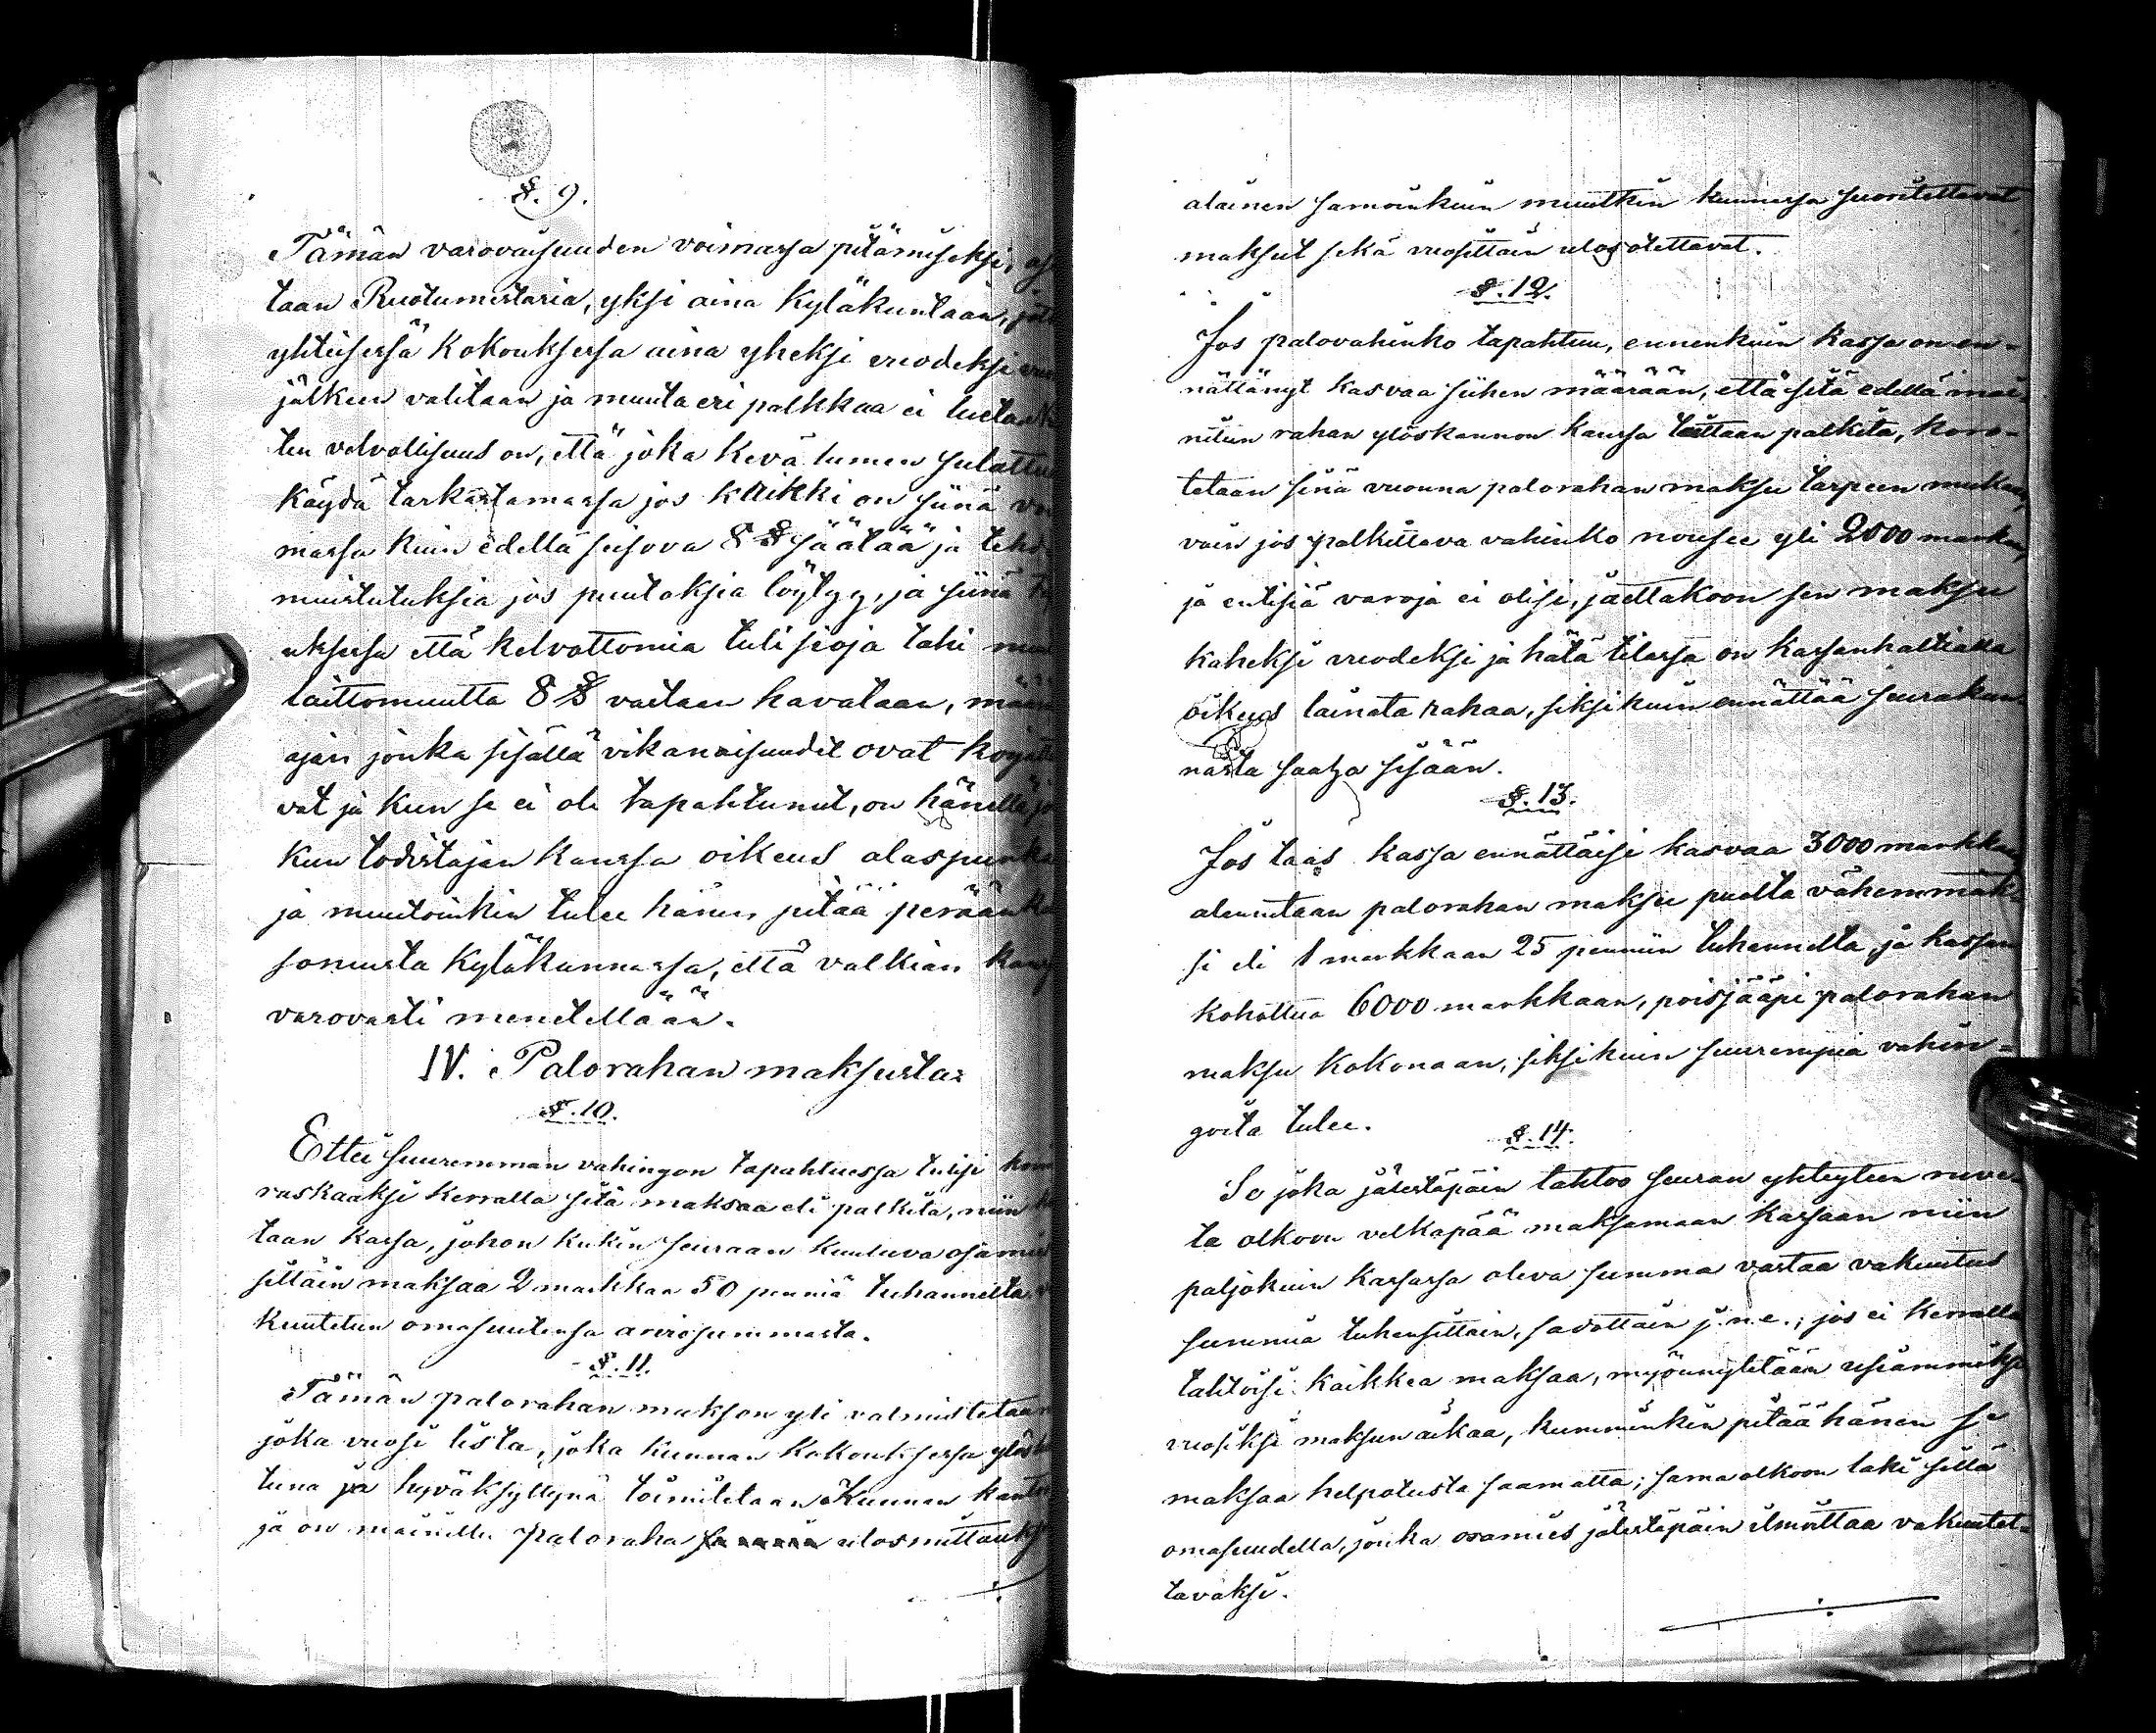 §. 9.
Tämän varovaisuuden voimassa pitämiseksi,
taan Ruotumestaria, yksi aina Kyläkuntaan,
yhteisessä Kokouksessa aina yheksi vuodeksi
jälkeen valitaan ja muuta eri palkkaa ei
ten velvollisuus on, että joka kevä lumen
käydä tarkastamassa jos kaikki on siinä
massa kuin edellä seisova 8 § säätää ja
muistutuksia jos puutoksia löytyy, ja siinä
uksessa että kelvottomia tulisioja tahi
laittomuutta 8 § vastaan havataan,
ajan jonka sisällä vikanaisuudet ovat
vat ja kun se ei ole tapahtunut, on hänellä
kun todistajan kanssa oikeus
ja muutoinkin tulee hänen pitää
somusta Kyläkunnassa, että valkian
varovasti menetellään.
IV. Palorahan maksusta.
§. 10.
Ettei suuremman vahingon tapahtuessa tulisi
raskaaksi kerralla sitä maksaa eli palkita, niin
taan kassa, johon kukin seuraan kuuluva
sittäin maksaa 2 markkaa 50 penniä tuhannelta
kuutetun omasuutensa arviosummasta.
§. 11.
Tämän palorahan makson yli valmistetaan
joka vuosi lista, joka kunnan Kokouksessa
tuna ja hyväksyttynä toimitetaan Kunnan
ja on mainittu paloraha
alainen samoinkuin muutkin kunnassa suoritettavat
maksut sekä vuosittain ulosotettavat.
§. 12.
Jos palovahinko tapahtuu, ennenkuin kassa on en-
nättänyt kasvaa siihen määrään, että sitä edellä mai-
nitun rahan ylöskannon kanssa taittaan palkita, koro-
tetaan sinä vuonna palorahan maksu tarpeen mukaan,
vain jos palkittava vahinko nousee yli 2000 markan,
ja entisiä varoja ei olisi, jaettakoon sen maksu
kaheksi vuodeksi ja hätä tilassa on kassanhaltialla
oikeus lainata rahaa, siksikuin ennättää seurakun-
nasta saatza sisään.
§. 13.
Jos taas kassa ennättäisi kasvaa 3000 markkaan
alennetaan palorahan maksu puolta vähemmäk-
si eli 1 markkaan 25 penniin tuhannelta, ja kassan
kohottua 6000 markkaan, poisjääpi palorahan
maksu kokonaan, siksikuin suurempia vahin-
goita tulee.
§. 14.
Se joka jälestäpäin tahtoo seuran yhteyteen ruve-
ta olkoon velkapää maksamaan kassaan niin
paljokuin kassassa oleva summa vastaa vakuutus
summia tuhansittain, sadottain j.n.e.; jos ei kerralla
tahtoisi kaikkea maksaa, myönnytetään useammiksi
vuosiksi maksun aikaa, kumminkin pitää hänen se
maksaa helpotusta saamatta; sama olkoon laki sillä
omasuudella, jonka osamies jälestäpäin ilmoittaa vakuutet-
tavaksi.